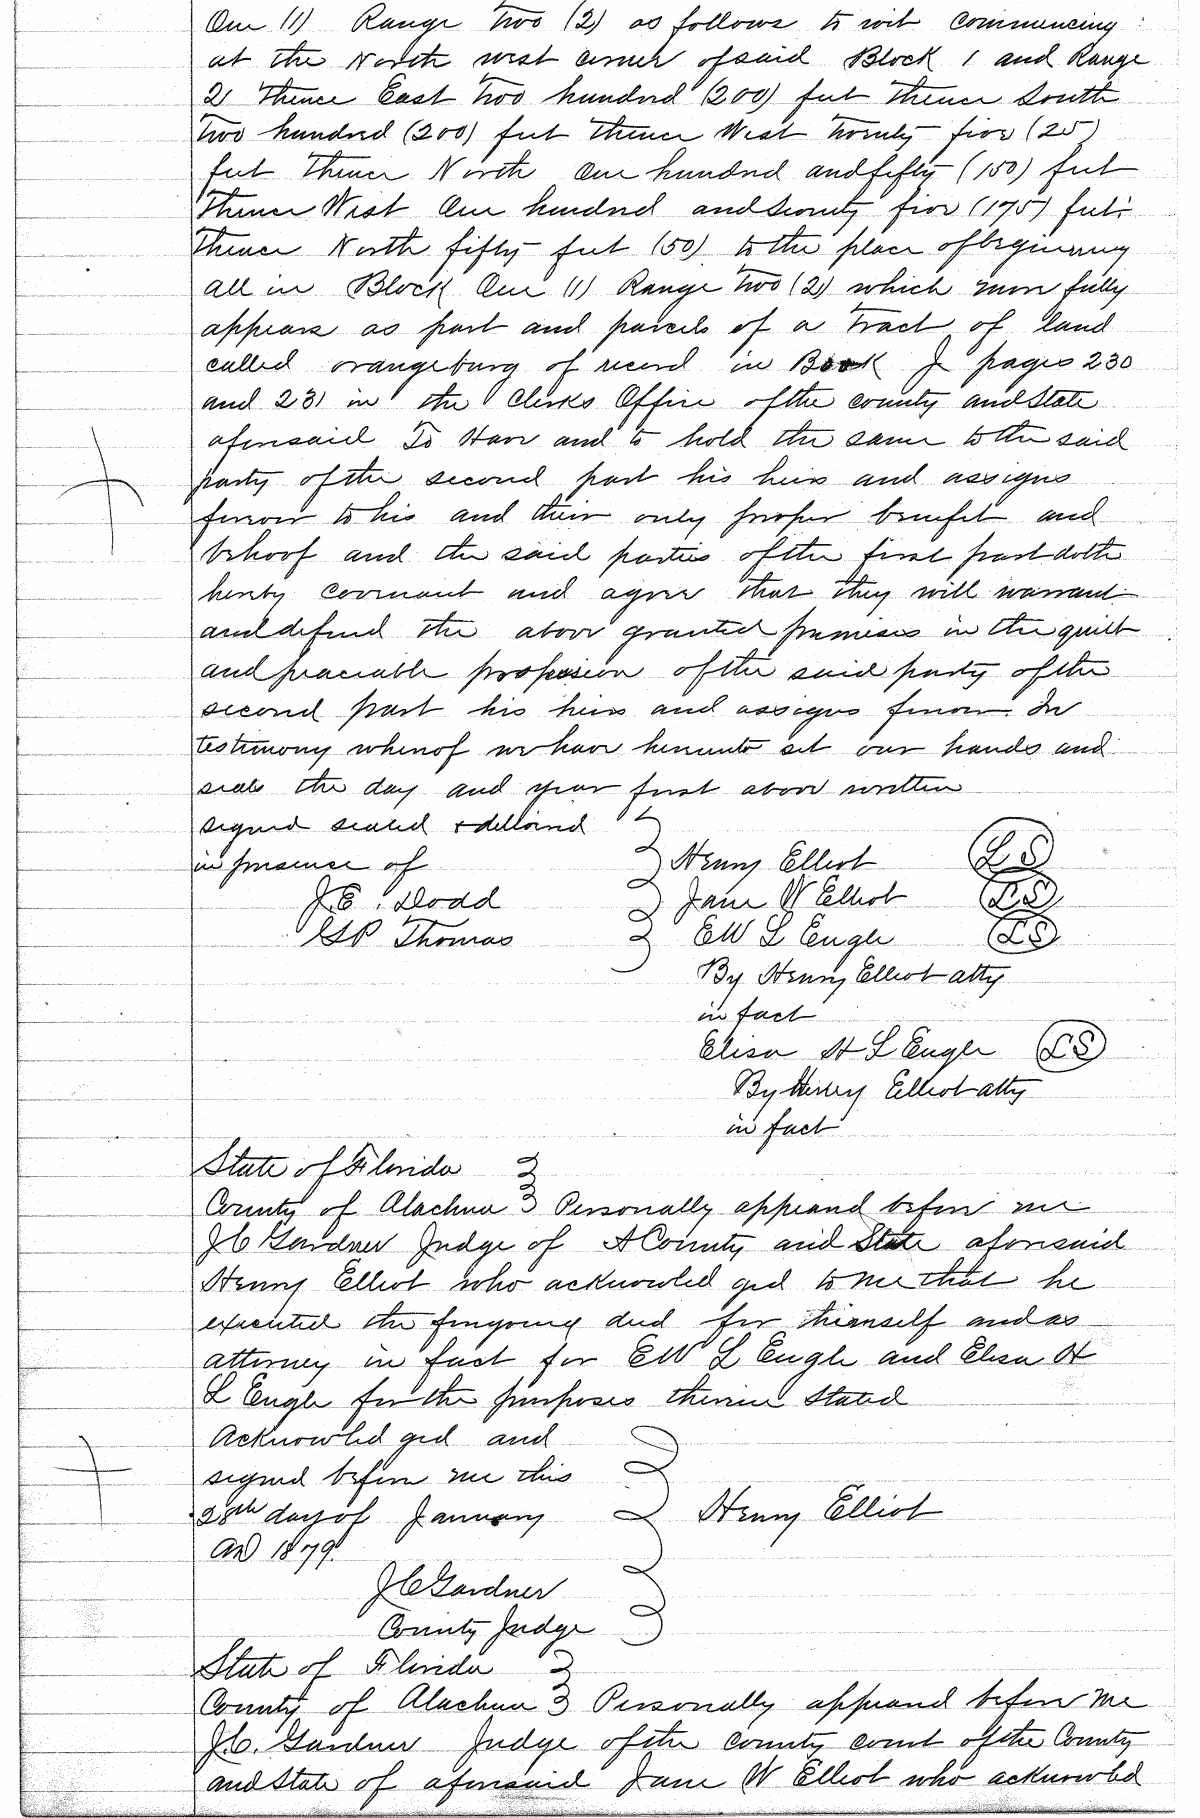 One (1) Range Two (2) as follows to wit commencing
at the North west corner of said Block 1 and Range
2 Thence East Two hundred (200) feet thence South
Two hundred (200) feet thence West Twenty five (25)
feet Thence North One hundred and fifty (150) feet
Thence West One hundred and Seventy five (175) feet
Thence North fifty feet (50) to the place of beginning
all in Block One (1) Range Two (2) which more fully
appears as part and parcels of a Tract of land
called orangeburg of record in Book J pages 230
and 231 in the Clerks Office of the county and State
aforesaid To Have and to hold the same to the said
party of the second part his heirs and assigns
forever to his and their only proper benefit and
behoof and the said parties of the first part doth
hereby covenant and agree that they will warrant
and defend the above granted premises in the quiet
and peaceable possession of the said party of the
second part his heirs and assigns forever In
testimony whereof we have hereunto set our hands and
seals the day and year first above written
signed sealed & delivered
in presence of Henry Elliot LS
J.C. Dodd Jane W Elliot LS
Thomas EW L Engle LS
By Henry Elliot atty
in fact
Elisa H L Engle LS
By Henry Elliot atty
in fact
State of Florida
County of Alachua Personally appeared before me
JC Gardner Judge of A County and State aforesaid
Henry Elliot who acknowled ged to me that he
executed the foregoing deed for himself and as
attorney in fact for EW L Engle and Elisa H
L Engle for the purposes therein Stated
Acknowled ged and
signed before me this
28th day of January Henry Elliot
AD 1879.
JC Gardner
County Judge
State of Florida
County of Alachua Personally appeared before me
J.C. Gardner Judge of the county court of the County
and State of aforesaid Jane W Elliot who acknowled